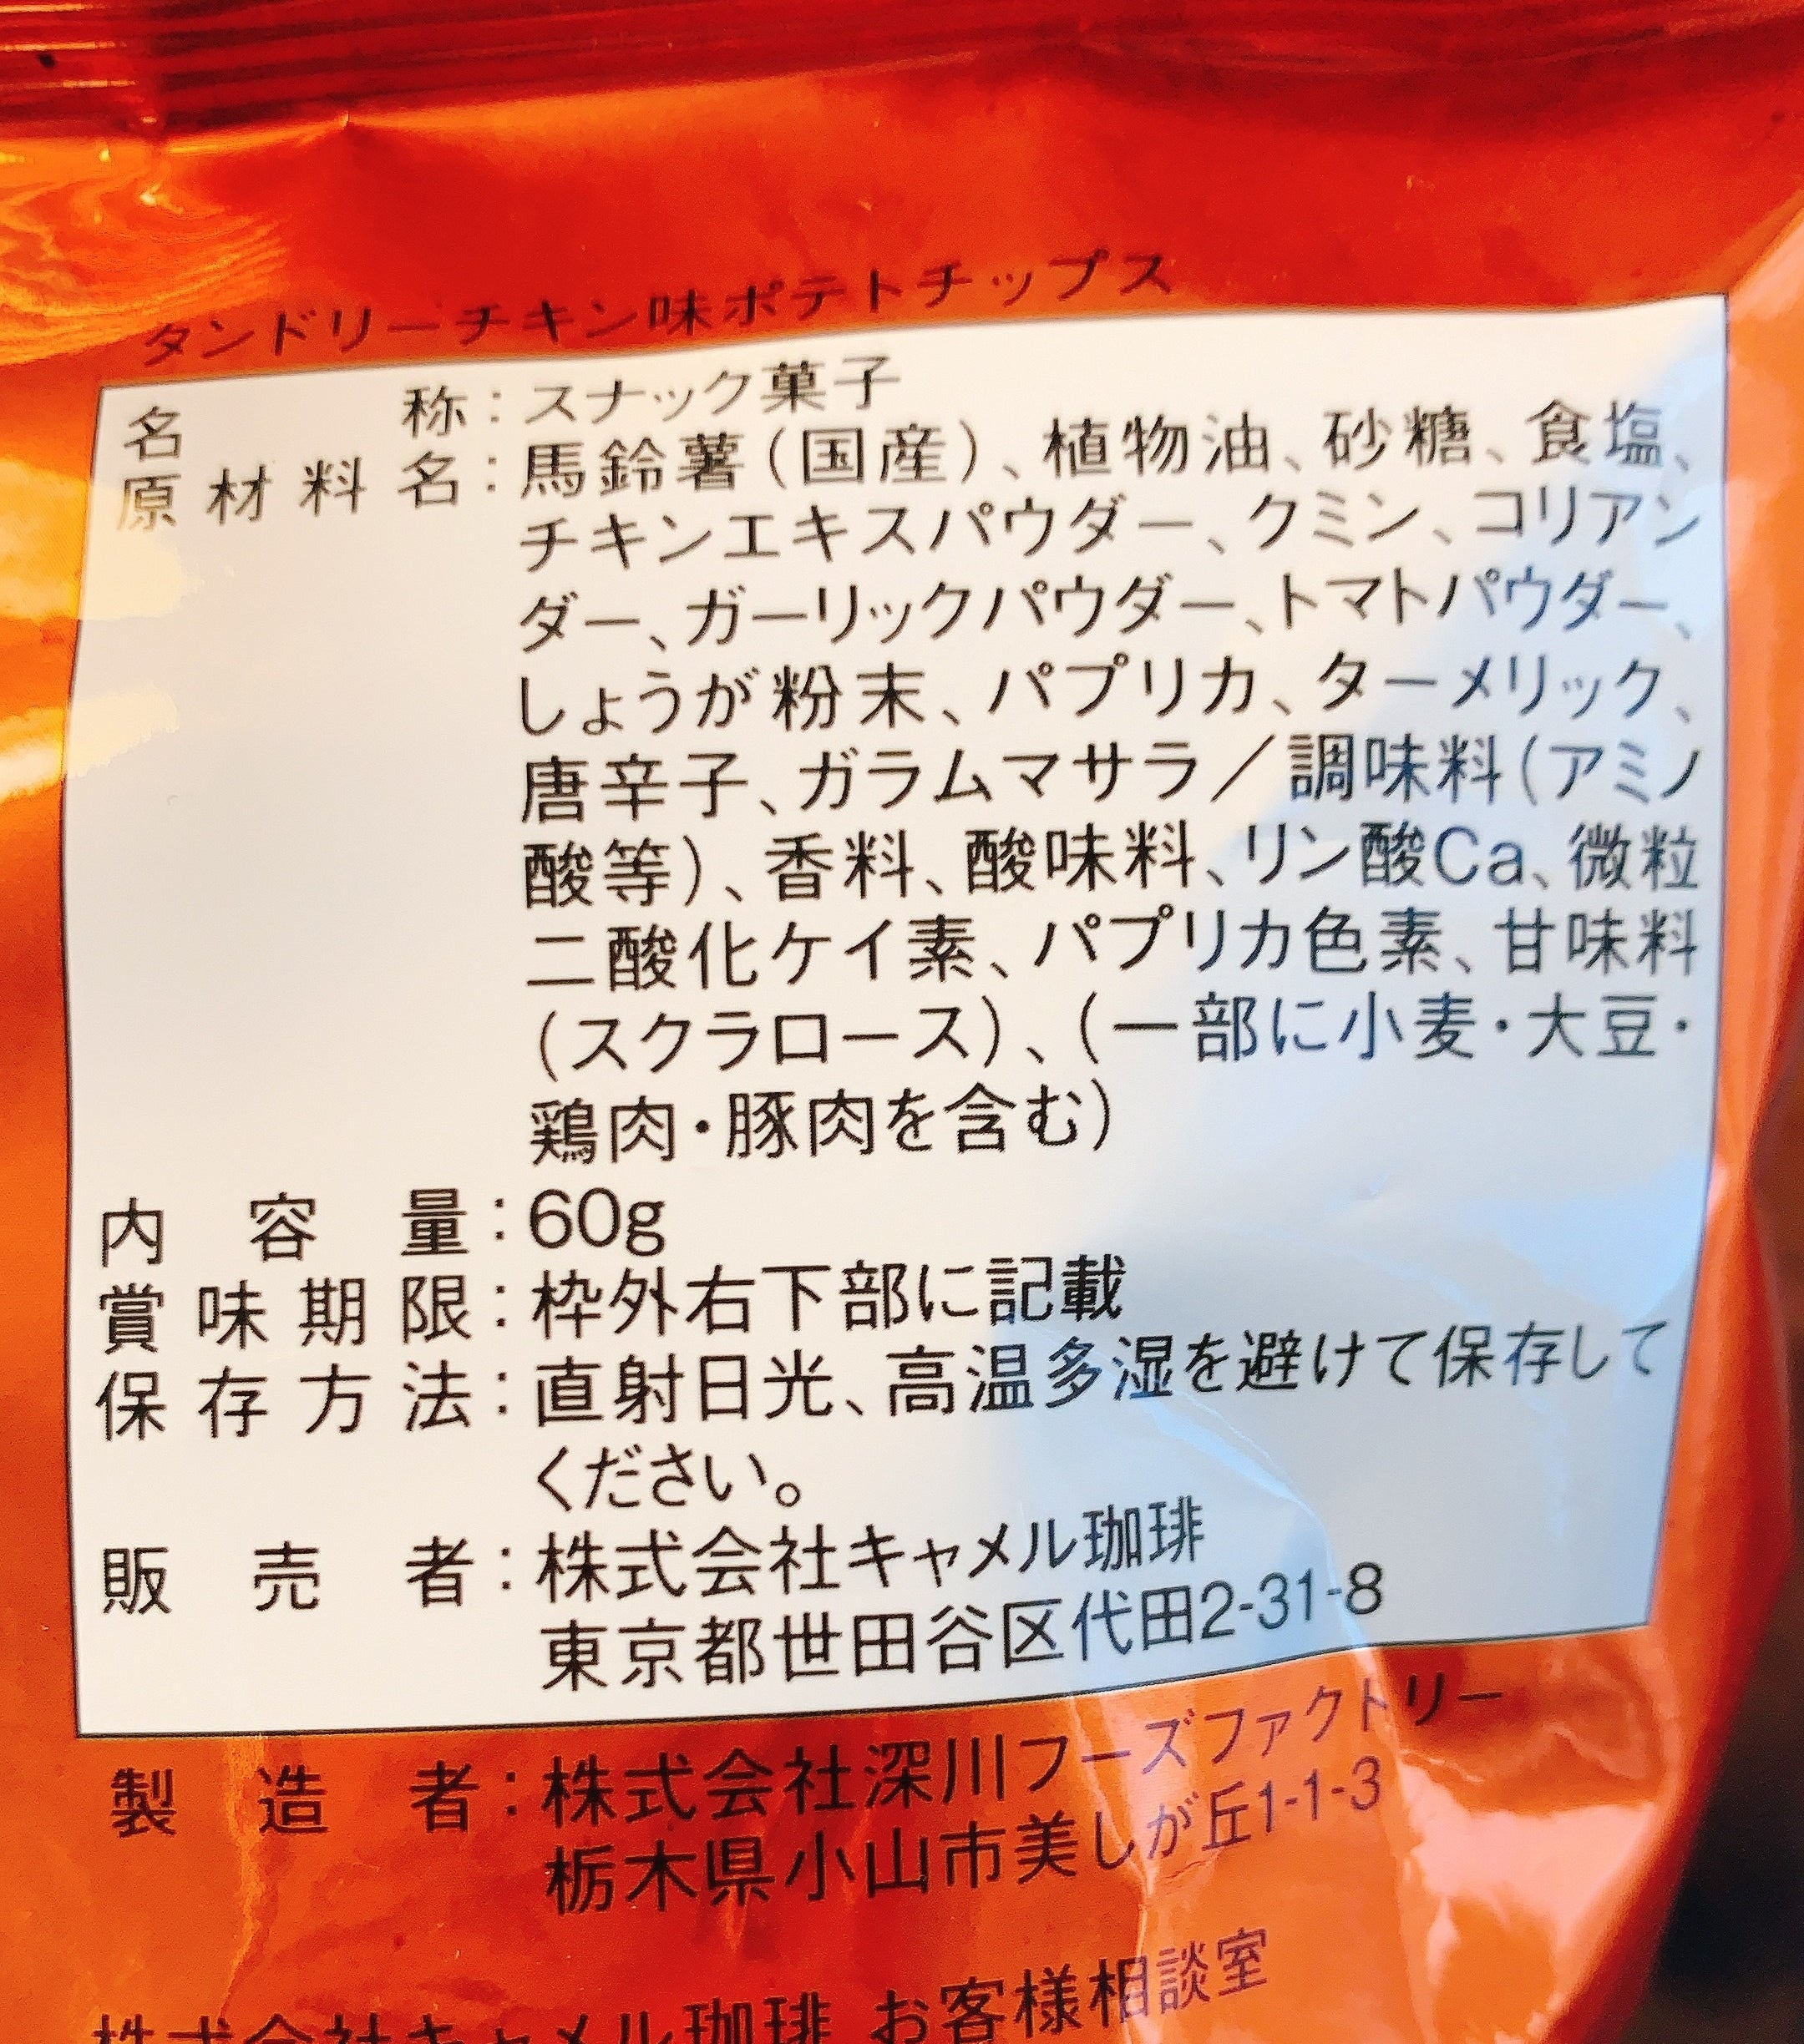 タンドリーチキン味ポテトチップス
名称:スナック菓子
原材料名:馬鈴薯(国産)、植物油、砂糖、食塩、
チキンエキスパウダー、クミン、コリアン
ダー、ガーリックパウダー、トマトパウダー、
しょうが粉末、パプリカ、ターメリック、
唐辛子、ガラムマサラ/調味料(アミノ
酸等)、香料、酸味料、リン酸Ca、微粒
二酸化ケイ素、パプリカ色素、甘味料
(スクラロース)、(一部に小麦・大豆・
鶏肉・豚肉を含む)
内容量:60g
賞味期限:枠外右下部に記載
保存方法:直射日光、高温多湿を避けて保存して
ください。
販売者:株式会社キャメル珈琲
東京都世田谷区代田2-31-8
製造者:株式会社深川フーズファクトリー
栃木県小山市美しが丘1-1-3
株式会社キャメル珈琲 お客様相談室